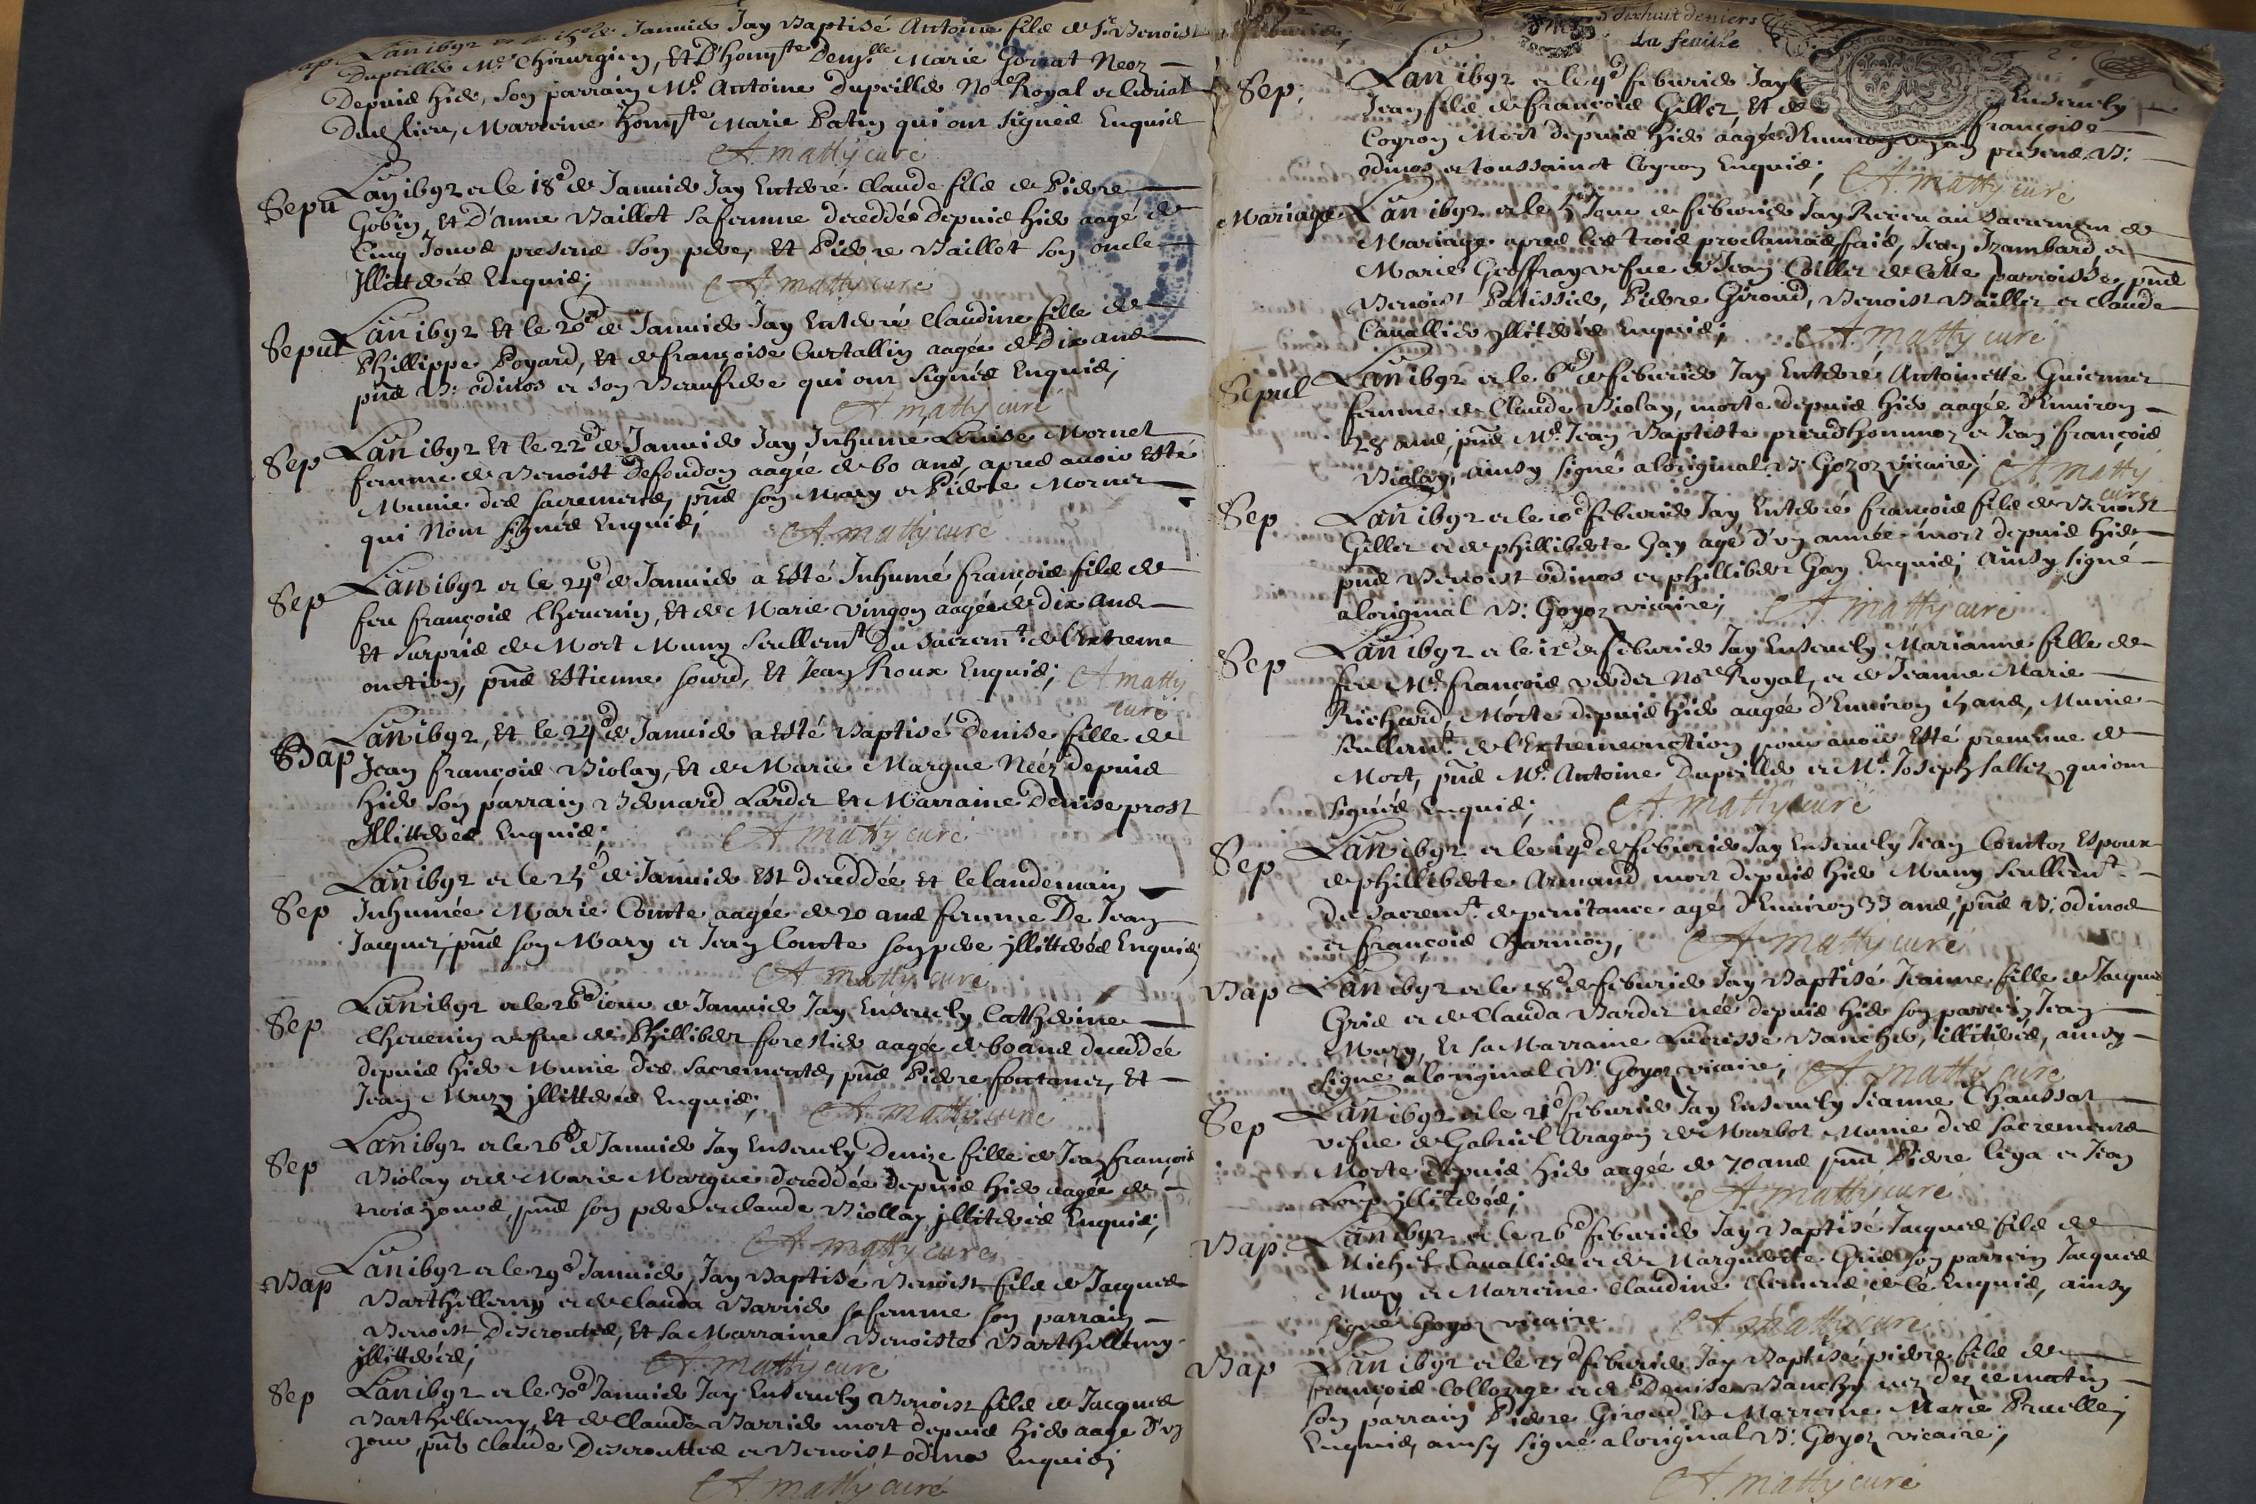 Bap Lan 1692 et le 15e de Januier Jay Baptisé Antoine filz de Sr Benoist
Dupeilloz Me Chirurgien, Et D'honnste Demlle Marie Néez
Depuis hier, Son parrain Me Antoine Dupeilloz Nore Royal et
Dudt lieu, Marreine honnste Marie Patin qui ont Signéz Enquis
A. matty curé
Sepu Lan 1692 et le 18e de Januier Jay Enterré Claude filz de Pierre
Gobin, Et D'anne Baillet Sa femme deceddée depuis hier aagé de
Cinq Jours presens Son pere, Et Pierre Baillet Son oncle
Jllitteréz Enquis;
A. matty curé
Sepul Lan 1692 Et le 20e de Januier Jay Enterré Claudine fille de
Phillippe Poyard, Et de françoise Curtallin aagée de Dix ans
pns B: odinos et Son Beaufrere qui ont Signéz Enquis;
A. matty curé
Sep Lan 1692 Et le 22e de Januier Jay Jnhumé Louise Mornet
femme de Benoist Defondon aagée de 60 ans, apres auoir Esté
Munie des Sacremens, pns Son Mary et Pierre Mornet
qui Nont Signéz Enquis;
A. matty curé
Sep Lan 1692 et le 24e de Januier a Esté Jnhumé françois filz de
feu françois Cheuenin, Et de Marie Vingon aagée de Dix ans
Et Surpris de Mort Muny Seullemt Du Sacremt de l'Extreme
onction, pns Estienne Sourd, Et Jean Roux Enquis; A. matty
curé
Bap Lan 1692, Et le 24e de Januier a Esté Baptisé Denise fille de
Jean françois Biolay, Et de Marie Margue Néez Depuis
hier Son parrain Bernard Larder Et Marraine Denise prost
Jllitteréz Enquis;
A. matty curé
Sep Lan 1692 et le 25e de Januier Est deceddée Et le landemain
Jnhumée Marie Comte aagée de 20 ans femme De Jean
Jacquet, pns Son Mary et Jean Comte Son pere jllitteréz Enquis
A. matty curé
Sep Lan 1692 et le 26e iour de Januier Jay Enseuely Catherine
Cheuenin vefue de Phillibert forestier aagée de 60 ans deceddée
depuis hier Munie des Sacrements, pns Pierre fontanet, Et
Jean Mury jllitteréz Enquis;
A. matty curé
Sep Lan 1692 et le 26e de Januier Jay Enseuely Denize fille de Jean françois
Biolay et de Marie Margue deceddée Depuis hier aagée de
trois jours, pns Son pere et Claude Biollay jllitteréz Enquis;
A. matty curé
Bap Lan 1692 et le 29e Januier, Jay Baptisé Benoist filz de Jacques
Barthellemy et de Clauda Barrier Sa femme Son parrain
Benoist Descrouttes, Et Sa Marraine Benoiste Barthellemy
jllitteréz;
A. matty curé
Sep Lan 1692 et le 30e Januier Jay Enseuely Benoist filz de Jacques
Barthellemy, Et de Clauda Barrier mort depuis hier aagé d'un
jour, pns Claude Descrouttes et Benoist odinos Enquis;
A. matty curé
dixhuit deniers
La feuille
Sep. Lan 1692 et le 4e feburier Jay Enseuely
Jean filz de françois Gillet, Et de françoise
Coyron Mort depuis hier aagé d'Enuiron un an presens B:
odinos et toussainct Coyron Enquis;
A. matty curé
Mariage Lan 1692 et le 5e Jour de feburier Jay Receu au Sacrement de
Mariage apres les trois proclamaons faits, Jean Jzambard, et
Marie Geoffray vefue de Jean Coillet de Cette parroisse, pns
Benoist Patissier, Pierre Giroud, Benoist Baillet et Claude
Cauallier jllitteréz Enquis;
A. matty curé
Sepul Lan 1692 et le 6e de feburier Jay Enterré Antoinette Guiermet
femme de Claude Biolay, morte depuis hier aagée d'Enuiron
28 ans, pns Me Jean Baptiste preudhommoz et Jean françois
Biolay, ainsy Signé a loriginal B: Goyoz vicaire;
A. matty curé
Sep Lan 1692 et le 10e feburier Jay Enterré françois filz de Benoist
Gillet et de phillberte Gay agé d'un année mort depuis hier
pns Benoist odinos et phillibert Gay Enquis; ainsy Signé
a loriginal B: Goyoz vicaire;
A. matty curé
Sep Lan 1692 et le 12e de feburier Jay Enseuely Marianne fille de
feu Me françois verder Nore Royal, et de Jeanne Marie
Richard, Morte depuis hier aagée d'Enuiron ans, Munie
Seullemt de l'Extremeonction pour auoir Esté preuenue de
Mort, pns Me Antoine Dupeilloz et Me Joseph fallez, qui ont
Signéz Enquis;
A. matty curé
Sep Lan 1692 et le 14e de feburier Jay Enseuely Jean Comtoz Espoux
de phillberte Armand mort depuis hier Muny Seullemt
du Sacremt de penitance agé d'Enuiron 33 ans, pns B: odinos
et françois Charmon,
A. matty curé
Bap Lan 1692 et le 18e de feburier Jay Baptisé Jeanne fille de Jacques
Gris et de Clauda Barder née depuis hier Son parrein Jean
Mury, Et Sa Marraine Lucresse Bancher, illitteréz, ainsy
Signé a loriginal B: Goyoz vicaire;
A. matty curé
Sep Lan 1692 et le 21e feburier Jay Enseuely Jeanne Chaussat
vefue de Gabriel Aragon de Marboz Munie des Sacrements
Morte depuis hier aagée de 70 ans pns Pierre Liga et Jean
Loup jllitteréz;
A. matty curé
Bap Lan 1692 et le 26e feburier Jay Baptisé Jacques filz de
Michel Cauallier et de Marguerite Gris Son parrein Jacques
Mury et Marreine Claudine Clement de Ce Enquis, ainsy
Signé Goyoz vicaire
A. matty curé
Bap Lan 1692 et le 27e feburier Jay Baptisé pierre filz de
françois Collonge et de Denise Banchy nez Dez ce matin
Son parrain Pierre Giroud Et Marreine Marie Pruelle;
Enquis, ainsy Signé a loriginal B: Goyoz vicaire;
A. matty curé